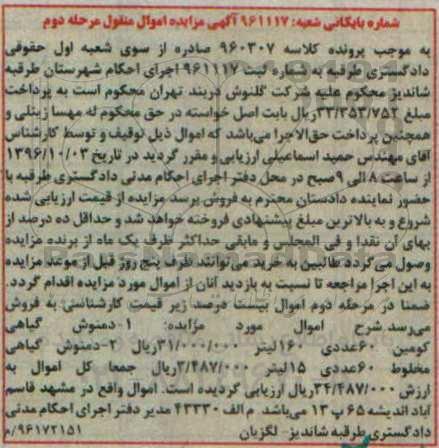 شماره بایگانی شعبه: ۹۶۱۱۱۷ آگهی مزایده اموال منقول مرحله دوم
به موجب پرونده کلاسه ۹۶۰۳۰۷ صادره از سوی شعبه اول حقوقی
دادگستری طرقبه به شماره ثبت ۹۶۱۱۱۷ اجرای احکام شهرستان طرقبه
شاندیز محکوم علیه شرکت گلنوش دربند تهران محکوم است به پرداخت
مبلغ ۳۳/۳۵۳/۷۵۲ریال بابت اصل خواسته در حق محکوم له مهسا زینلی و
همچنین پرداخت حق‌الاجرا می‌باشد که اموال ذیل توقیف و توسط کارشناس
آقای مهندس حمید اسماعیلی ارزیابی و مقرر گردید در تاریخ ۱۳۹۶/۱۰/۰۳
از ساعت ۸ الی ۹صبح در محل دفتر اجرای احکام مدنی دادگستری طرقبه با
حضور نماینده دادستان محترم به فروش برسد مزایده از قیمت ارزیابی شده
شروع و به بالاترین مبلغ پیشنهادی فروخته خواهد شد و حداقل ده درصد از
بهای آن نقدا و فی المجلس و مابقی حداکثر ظرف یک ماه از برنده مزایده
وصول می‌گردد طالبین به خرید می‌توانند ظرف پنج روز قبل از موعد مزایده
به این اجرا مراجعه تا نسبت به بازدید آنان از اموال مورد مزایده اقدام گردد.
ضمنا در مرحله دوم اموال بیست درصد زیر قیمت کارشناسی به فروش
می‌رسد.شرح اموال مورد مزایده: ۱-دمنوش گیاهی
کومین ۶۰عددی ۱۶۰لیتر ۳۱/۰۰۰/۰۰۰ریال ۲-دمنوش گیاهی
مخلوط ۶۰عددی ۱۵لیتر ۳/۴۸۷/۰۰۰ریال جمعا کل اموال به
ارزش ۳۴/۴۸۷/۰۰۰ریال ارزیابی گردیده است. اموال واقع در مشهد قاسم
آباد اندیشه ۶۵ پ ۱۳ می‌باشد. م الف ۴۳۳۳۰ مدیر دفتر اجرای احکام مدنی
دادگستری طرقبه شاندیز- لگزیان ۹۶۱۷۲۱۵۱/م